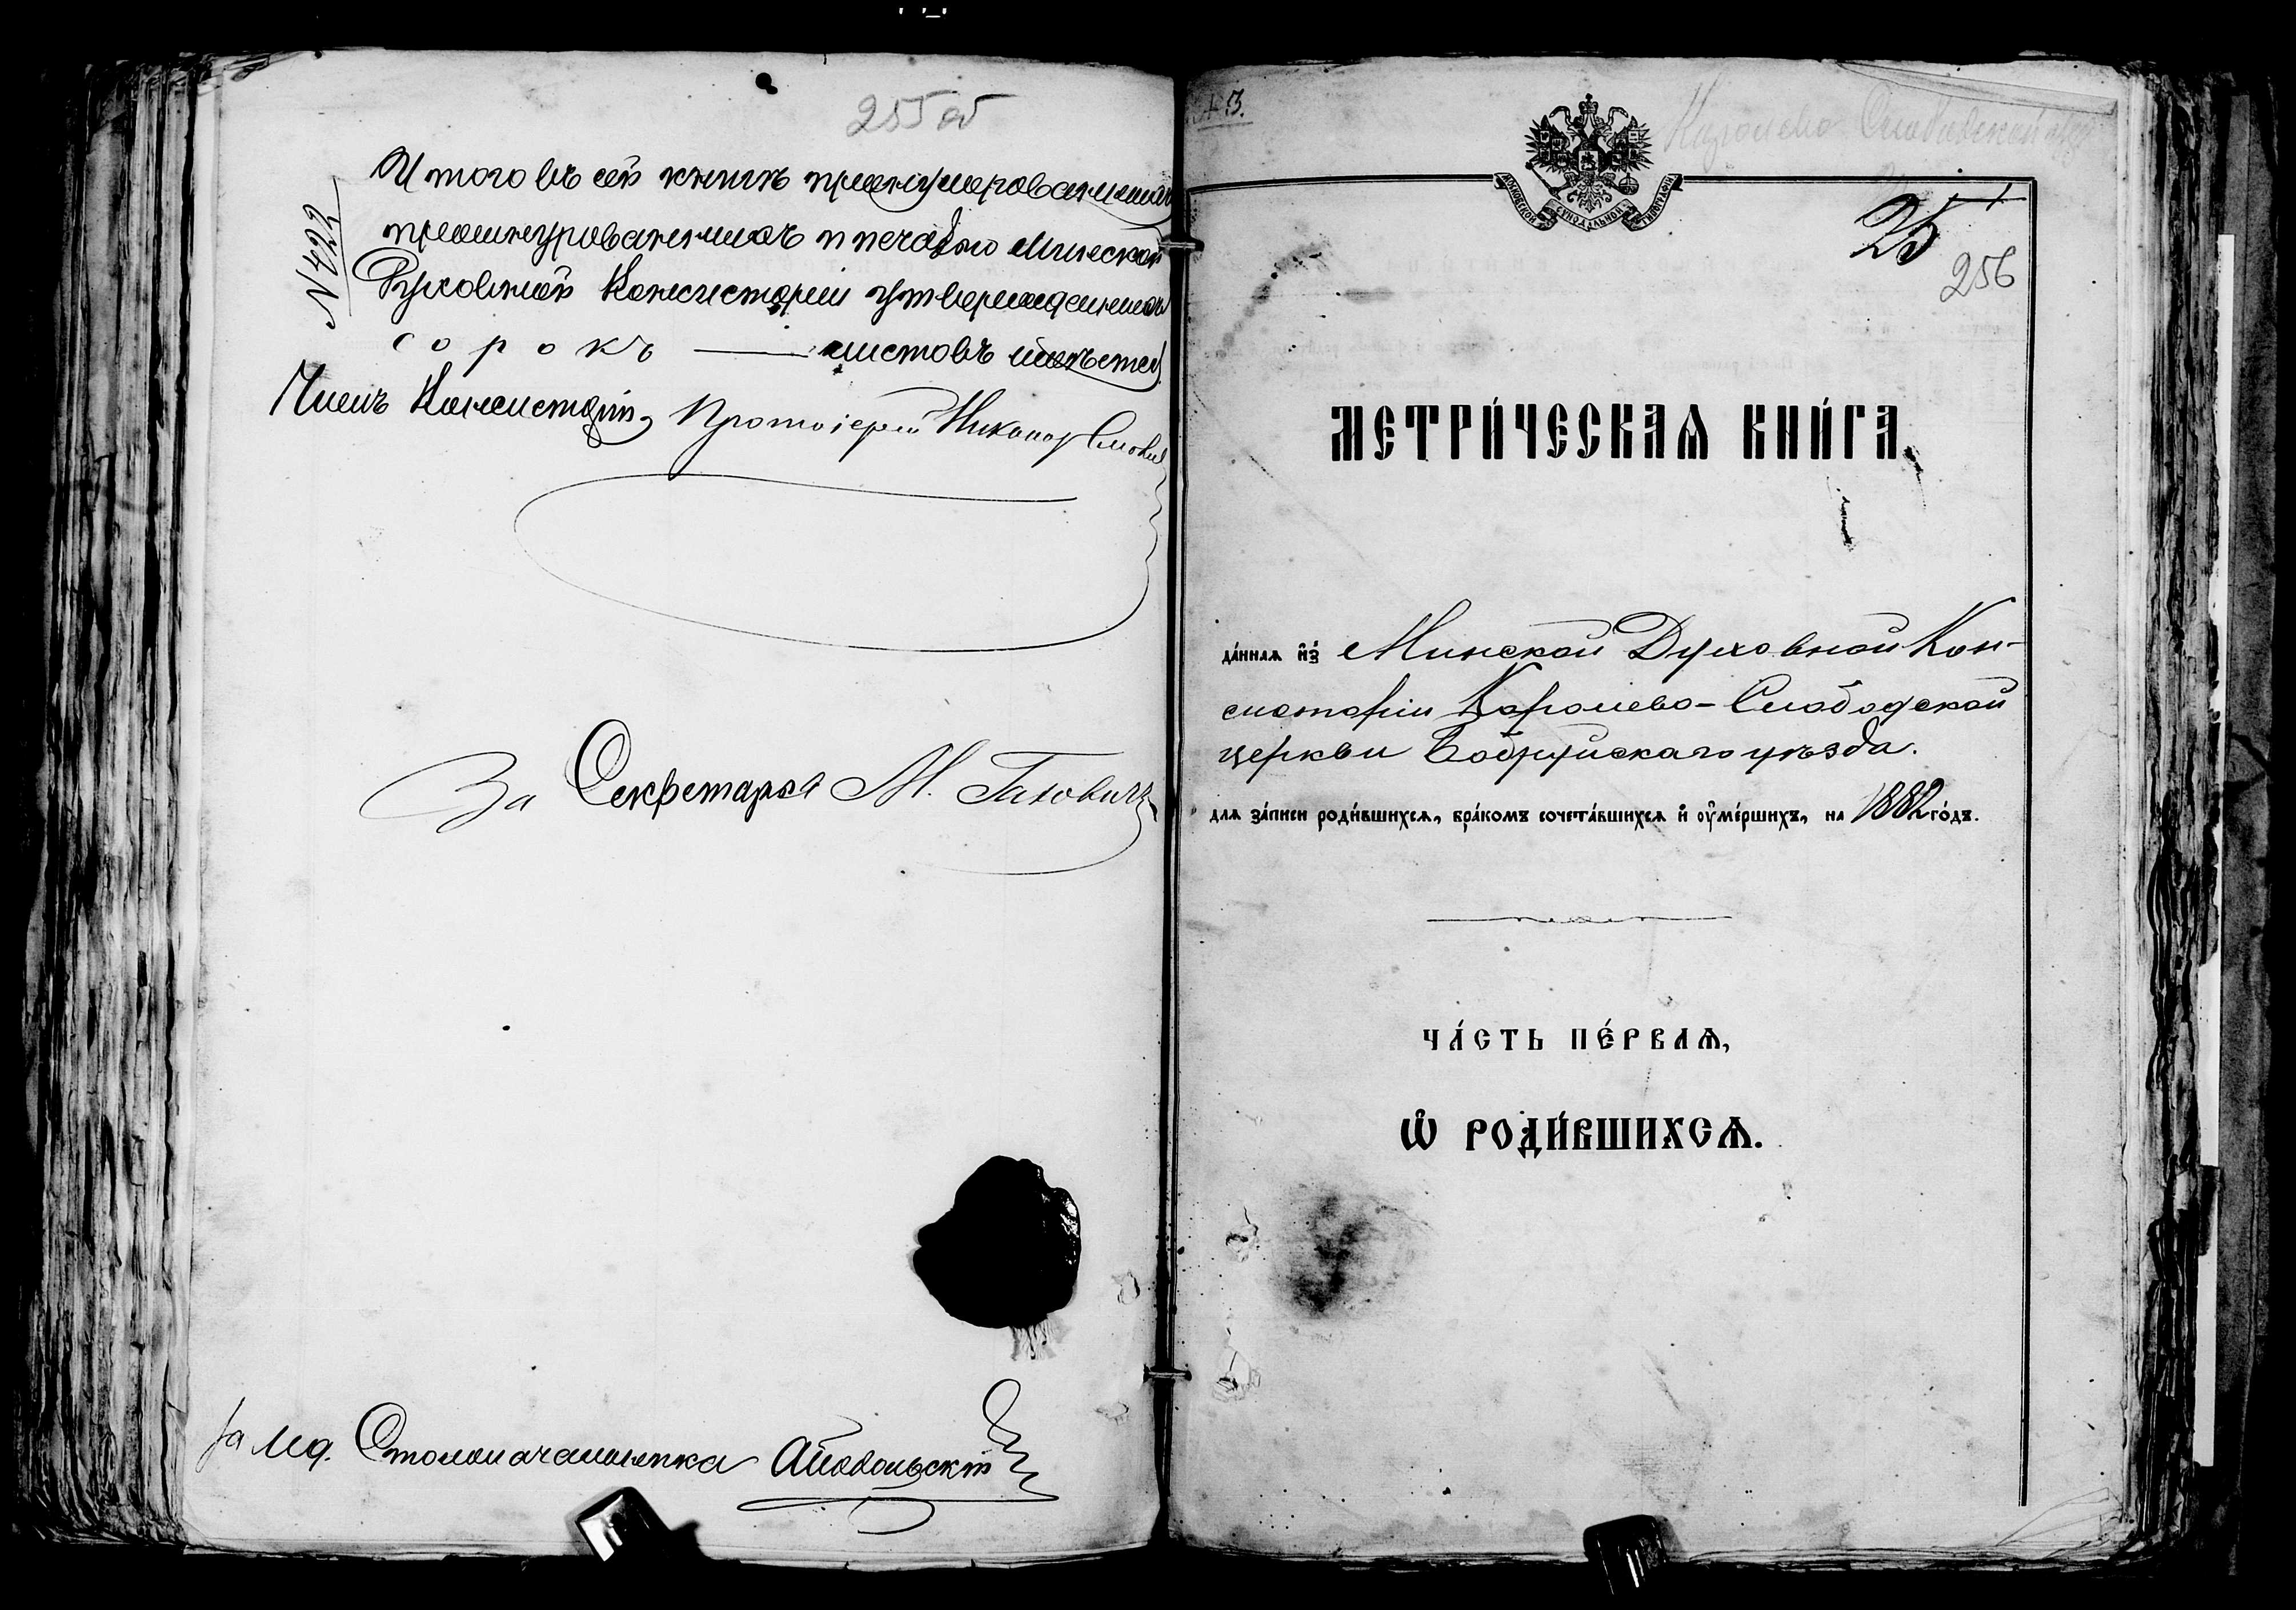 255 об
№ 422
Итого въ сей книгѣ пронумерованныхъ
прошнурованныхъ и печатью Минской
Духовной Консисторіи утвержденныхъ
сорокъ — листовъ
Членъ Консисторіи, Протоіерей Никанор
За Секретаря М.
За Столоначальника
256
МОСКОВСКОЙ СУНОДАЛЬНОЙ ТИПОГРАФІИ
Каролево Слободской
25
МЕТРИ́ЧЕСКАѦ КНИ́ГА,
да́ннаѧ и҆з̾ Минской Духовной Кон-
систоріи Каролево-Слободской
церкви Бобруйскаго уѣзда.
длѧ за́писи роди́вшихсѧ, бра́комъ сочета́вшихсѧ и҆ оу҆ме́ршихъ, на 1882 го́дъ.
ЧА́СТЬ ПЕ́РВАѦ,
Ѡ҆ РОДИ́ВШИХСѦ.